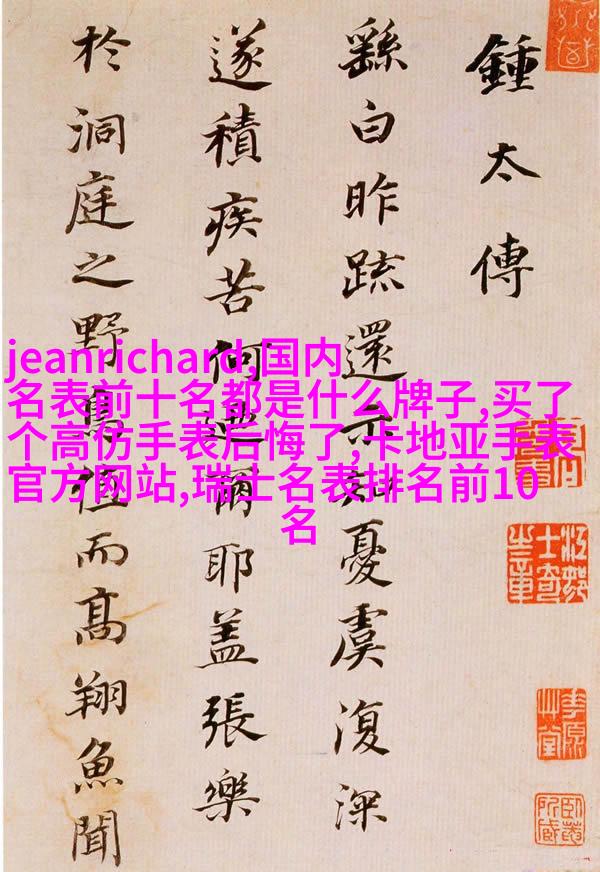 鍾太傅
繇白昨疏還示知憂虞復深
遂積疾苦何迺爾耶蓋張樂
於洞庭之野鳥值而高翔魚聞
jeanrichard,国内
名表前十名都是什么牌子,买了
个高仿手表后悔了,卡地亚手表
官方网站,瑞士名表排名前10
名